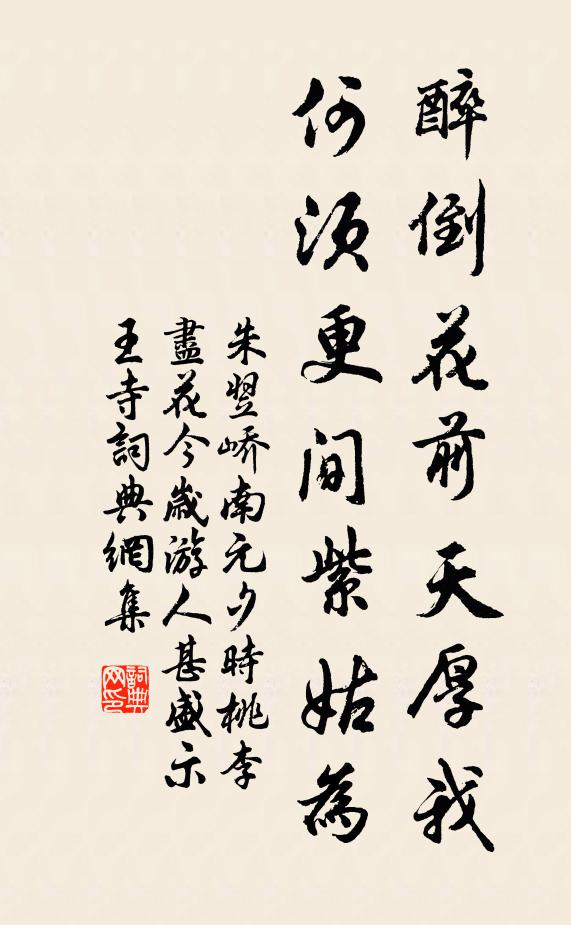 醉倒花前天厚我
何須更問紫姑為
朱翌嶠南元夕時桃李
盡花今歲游人甚盛示
王寺詞典網集
詞典網印